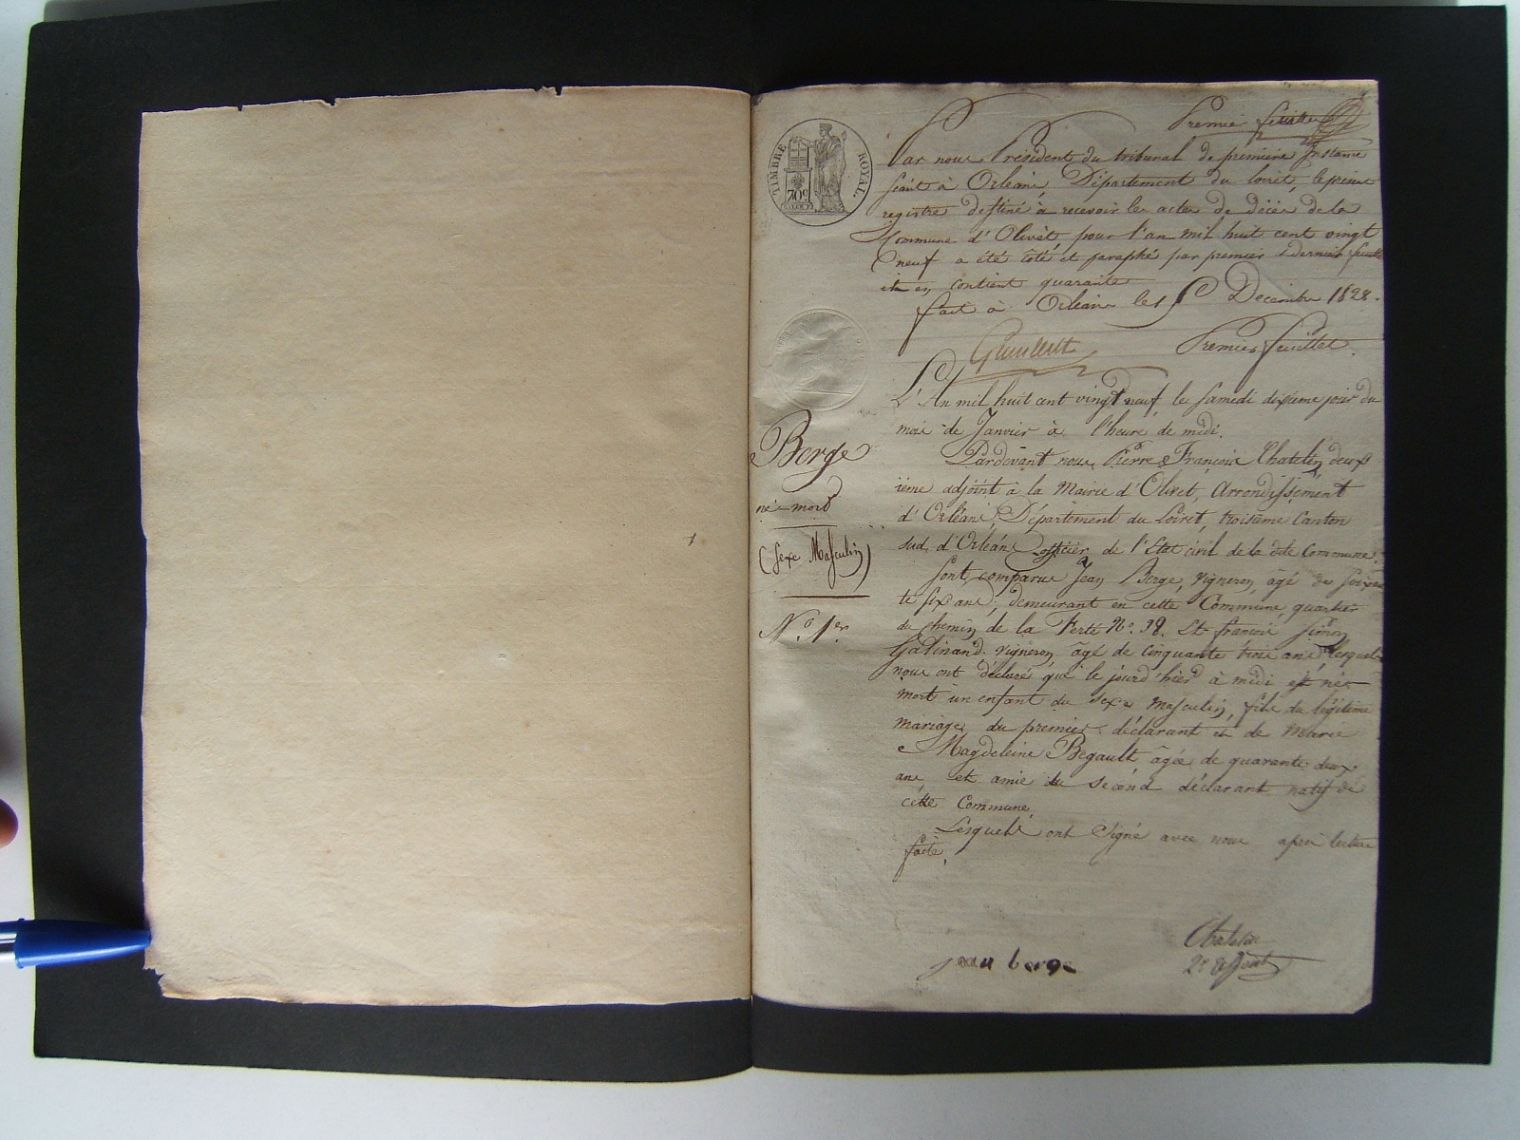 Premier feuillet
TIMBRE ROYAL
70c
Par nous Président du tribunal de première Instance
séant à Orléans, Département du Loiret, le présent
registre destiné à recevoir les actes de décès de la
Commune d'Olivet pour l'an mil huit cent vingt
neuf a été coté et paraphé par premier & dernier feuillet
et en contient quarante
fait à Orléans les Décembre 1828.
Premier feuillet.
L'An mil huit cent vingt neuf, le Samedi dixième jour du
mois de Janvier à l'heure de midi.
Pardevant nous Pierre François Chatelin deux
ième adjoint à la Mairie d'Olivet, Arrondissement
d'Orléans, Département du Loiret, troisième Canton
sud d'Orléans officier de l'Etat civil de la dite Commune,
Sont comparus Jean Berge, vigneron, âgé de soixan
te six ans, demeurant en cette Commune, quartier
du chemin de la Ferté N.o 38. Et françois Simon
Galinand vigneron âgé de cinquante trois ans lesquels
nous ont déclaré que le jourd'hier à midi est né
mort un enfant du sexe masculin, fils du légitime
mariage du premier déclarant et de Marie
Magdeleine Begault âgée de quarante deux
ans et amie du second déclarant natif de
cette Commune,
Lesquels ont Signé avec nous après lecture
faite.
Berge
né mort
(Sexe Masculin)
N.o 1.er
jean berge
Chatelin
2e adjoint